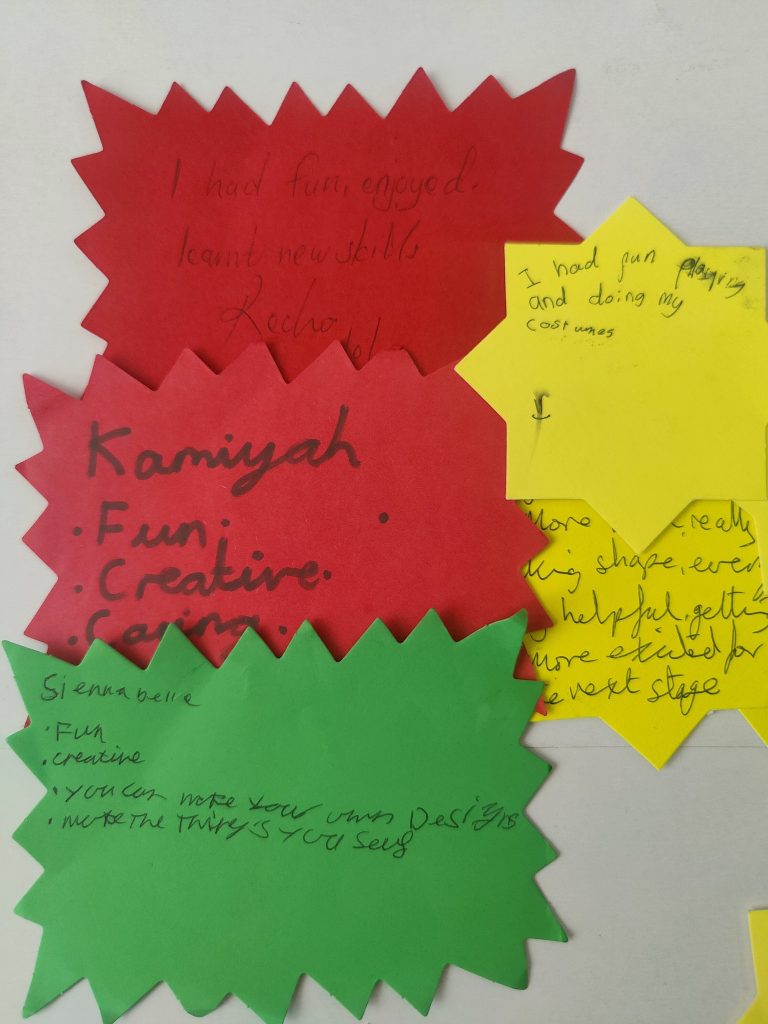 I had fun, enjoyed.
learnt new skills
I had fun playing
and doing my
costumes
I
Kamiyah
• Fun.
• Creative.
• Caring.
more really
king shape, even
helpful, getting
more excited for
e next stage
Siennabella
• Fun
• creative
• you can make your own Designs
• make the things you self